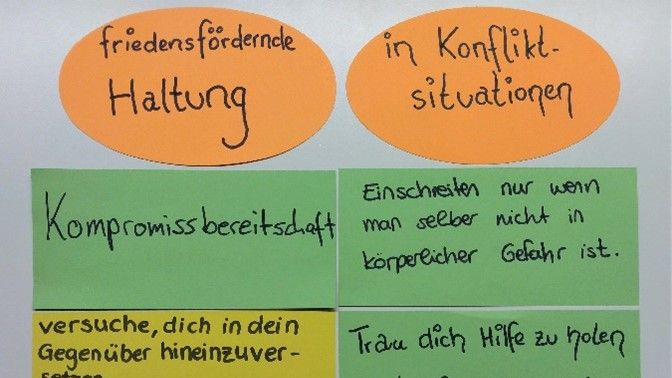 friedensfördernde
Haltung
in Konflikt-
situationen
Kompromissbereitschaft
Einschreiten nur wenn
man selber nicht in
körperlicher Gefahr ist.
versuche, dich in dein
Gegenüber hineinzuver-
Trau dich Hilfe zu holen